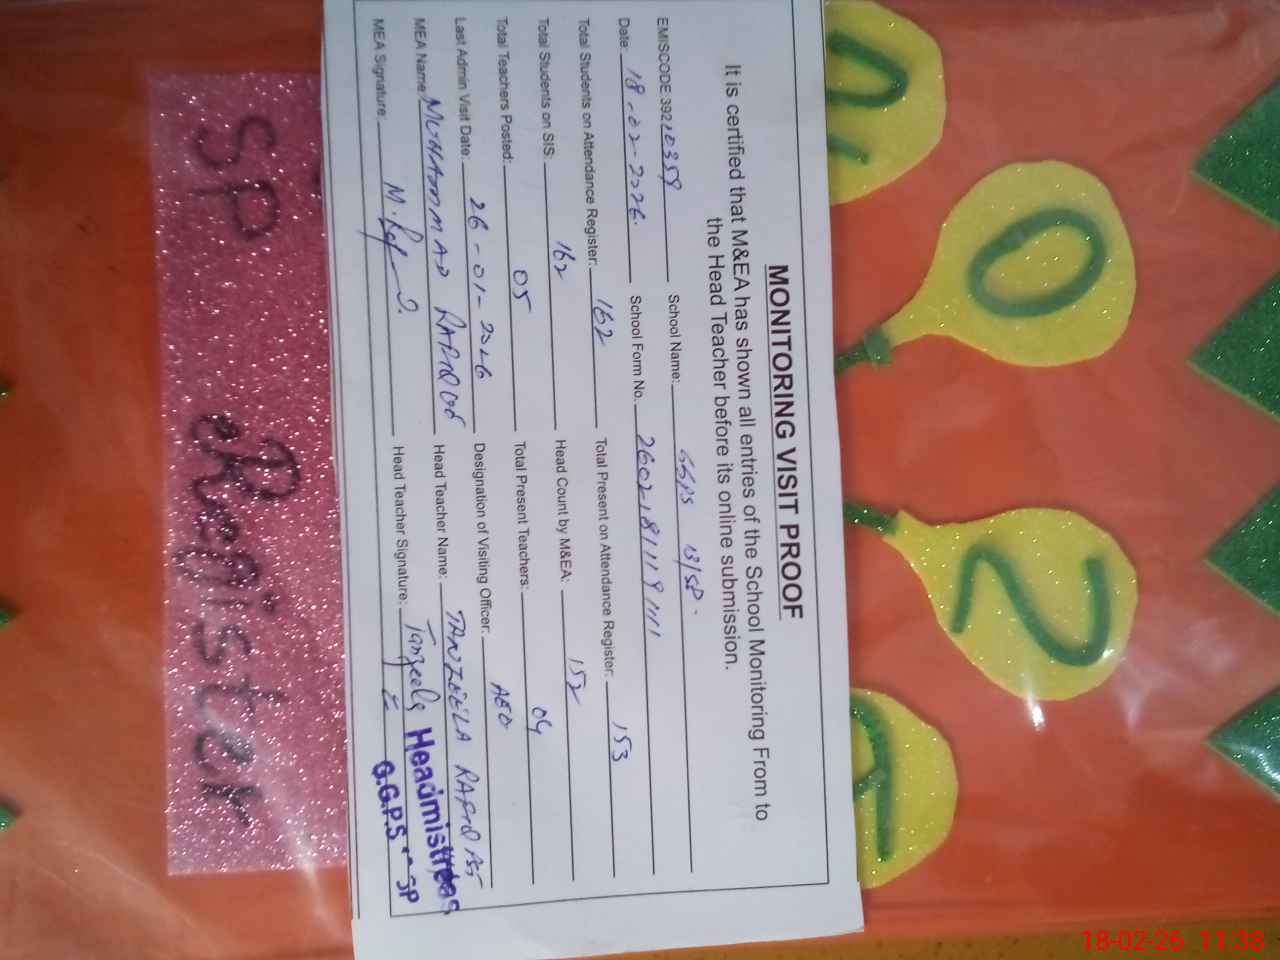 MONITORING VISIT PROOF
It is certified that M&EA has shown all entries of the School Monitoring From to
the Head Teacher before its online submission.
EMISCODE 39210359 School Name: GGPS 13/SP.
Date: 18-02-2026. School Form No. 26021811191111
Total Students on Attendance Register: 162 Total Present on Attendance Register: 153
Total Students on SIS: 162 Head Count by M&EA: 152
Total Teachers Posted: 05 Total Present Teachers: 04
Last Admin Visit Date: 26-01-2026 Designation of Visiting Officer: AEO
MEA Name: MUHAMMAD RAFIQUE Head Teacher Name: TANZEELA RAFIQ
MEA Signature: Head Teacher Signature: Tanzeela
Headmistress
G.G.P.S SP
SP eRegister
0
2
18-02-25 11:38